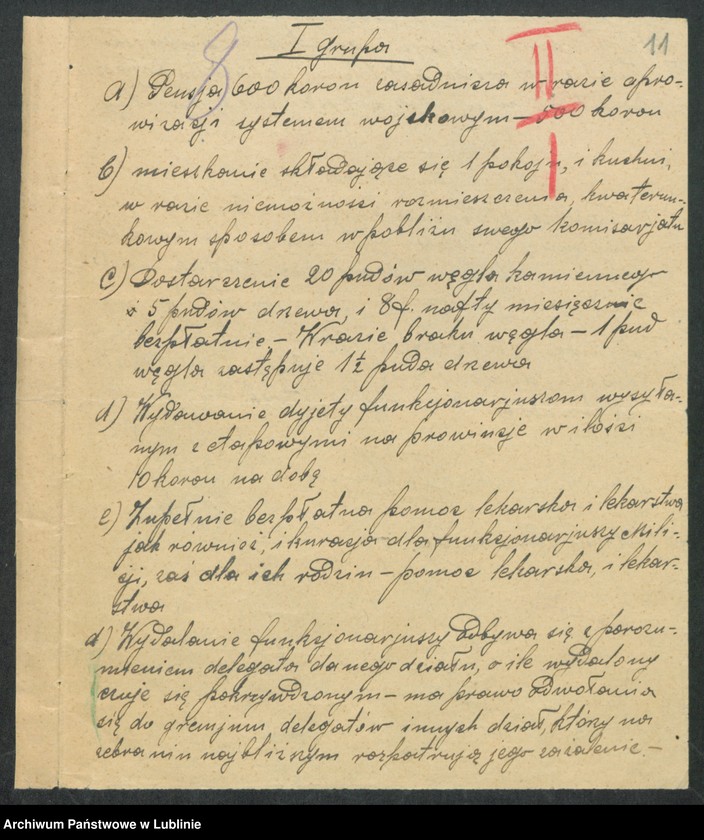 I grupa
8
II
I
11
a) Pensja 600 koron zasadnicza w razie apro-
wizacji systemem wojskowym – 500 koron
b) mieszkanie składające się 1 pokoju, i kuchni,
w razie niemożności rozmieszczenia, kwaterun-
kowym sposobem w pobliżu swego komisarjatu
c) Dostarczenie 20 pudów węgla kamiennego
i 5 pudów drzewa, i 8f. nafty miesięcznie
bezpłatnie – W razie, braku węgla – 1 pud
węgla zastępuje 1½ puda drzewa
d) Wydawanie dyjety funkcjonarjuszom wysyła-
nym z etapowymi na prowincje w ilości
10 koron na dobę
e) Zupełnie bezpłatna pomoc lekarska i lekarstwa
jak również, i kuracja dla funkcjonarjuszy Mili-
cji, zaś dla ich rodzin – pomoc lekarska, i lekar-
stwa
d) Wydalanie funkcjonarjuszy odbywa się z porozu-
mieniem delegata danego działu, o ile wydalony
czuje się pokrzywdzonym – ma prawo odwołania
się do gremjum delegatów innych dział, który na
zebraniu najbliższym rozpatrują jego zażalenie. –
Archiwum Państwowe w Lublinie